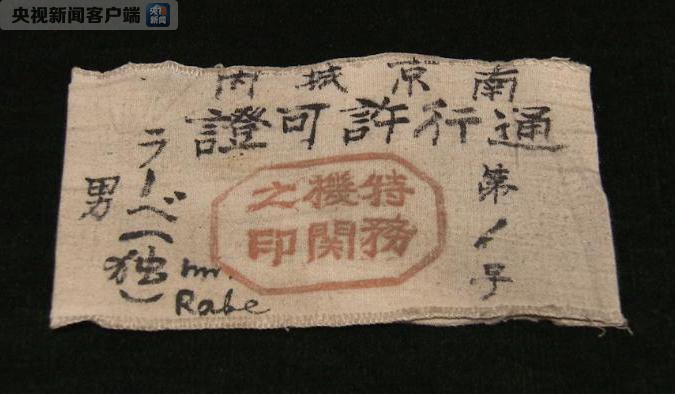 央视新闻客户端
央视
新闻
南京城内
通行許可證
第1号
特務
機関
之印
ラーベ(独)
男
Mr.
Rabe